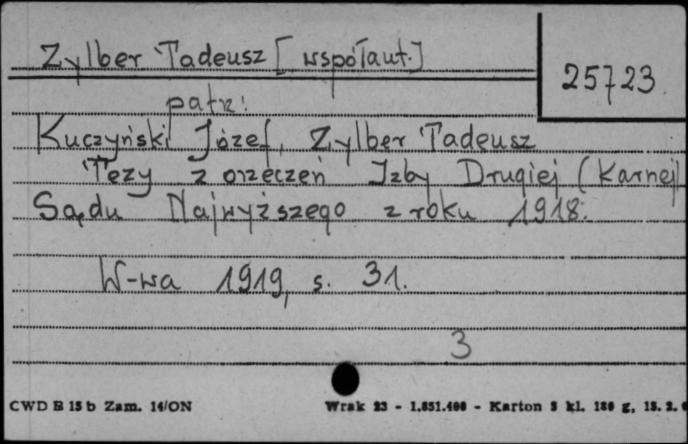 Zylber Tadeusz [współaut.]
25723
patrz:
Kuczyński Józef, Zylber Tadeusz
Tezy z orzeczeń Izby Drugiej (Karnej)
Sądu Najwyższego z roku 1918.
W-wa 1919, s. 31.
3
CWD B 15 b Zam. 14/ON
Wrak 23 - 1.851.400 - Karton 5 kl. 180 g, 15. 2.